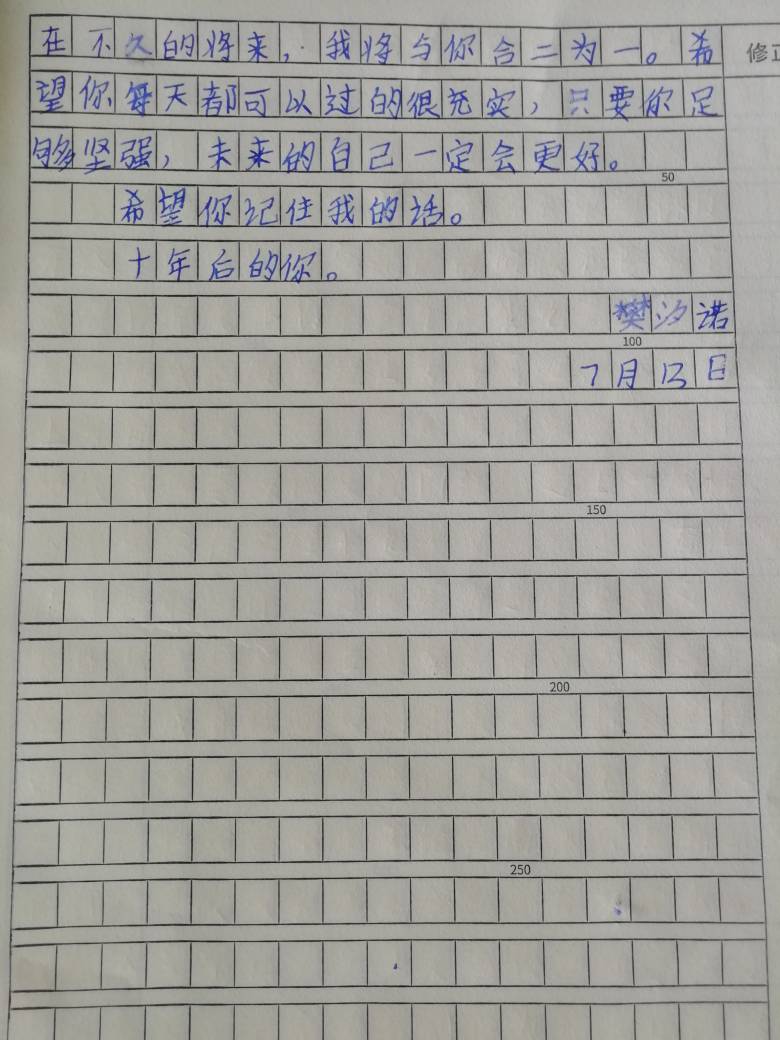 在不久的将来，我将与你合二为一。希
望你每天都可以过的很充实，只要你足
够坚强，未来的自己一定会更好。
50
希望你记住我的话。
十年后的你。
樊汐诺
100
7月12日
150
200
250
修正